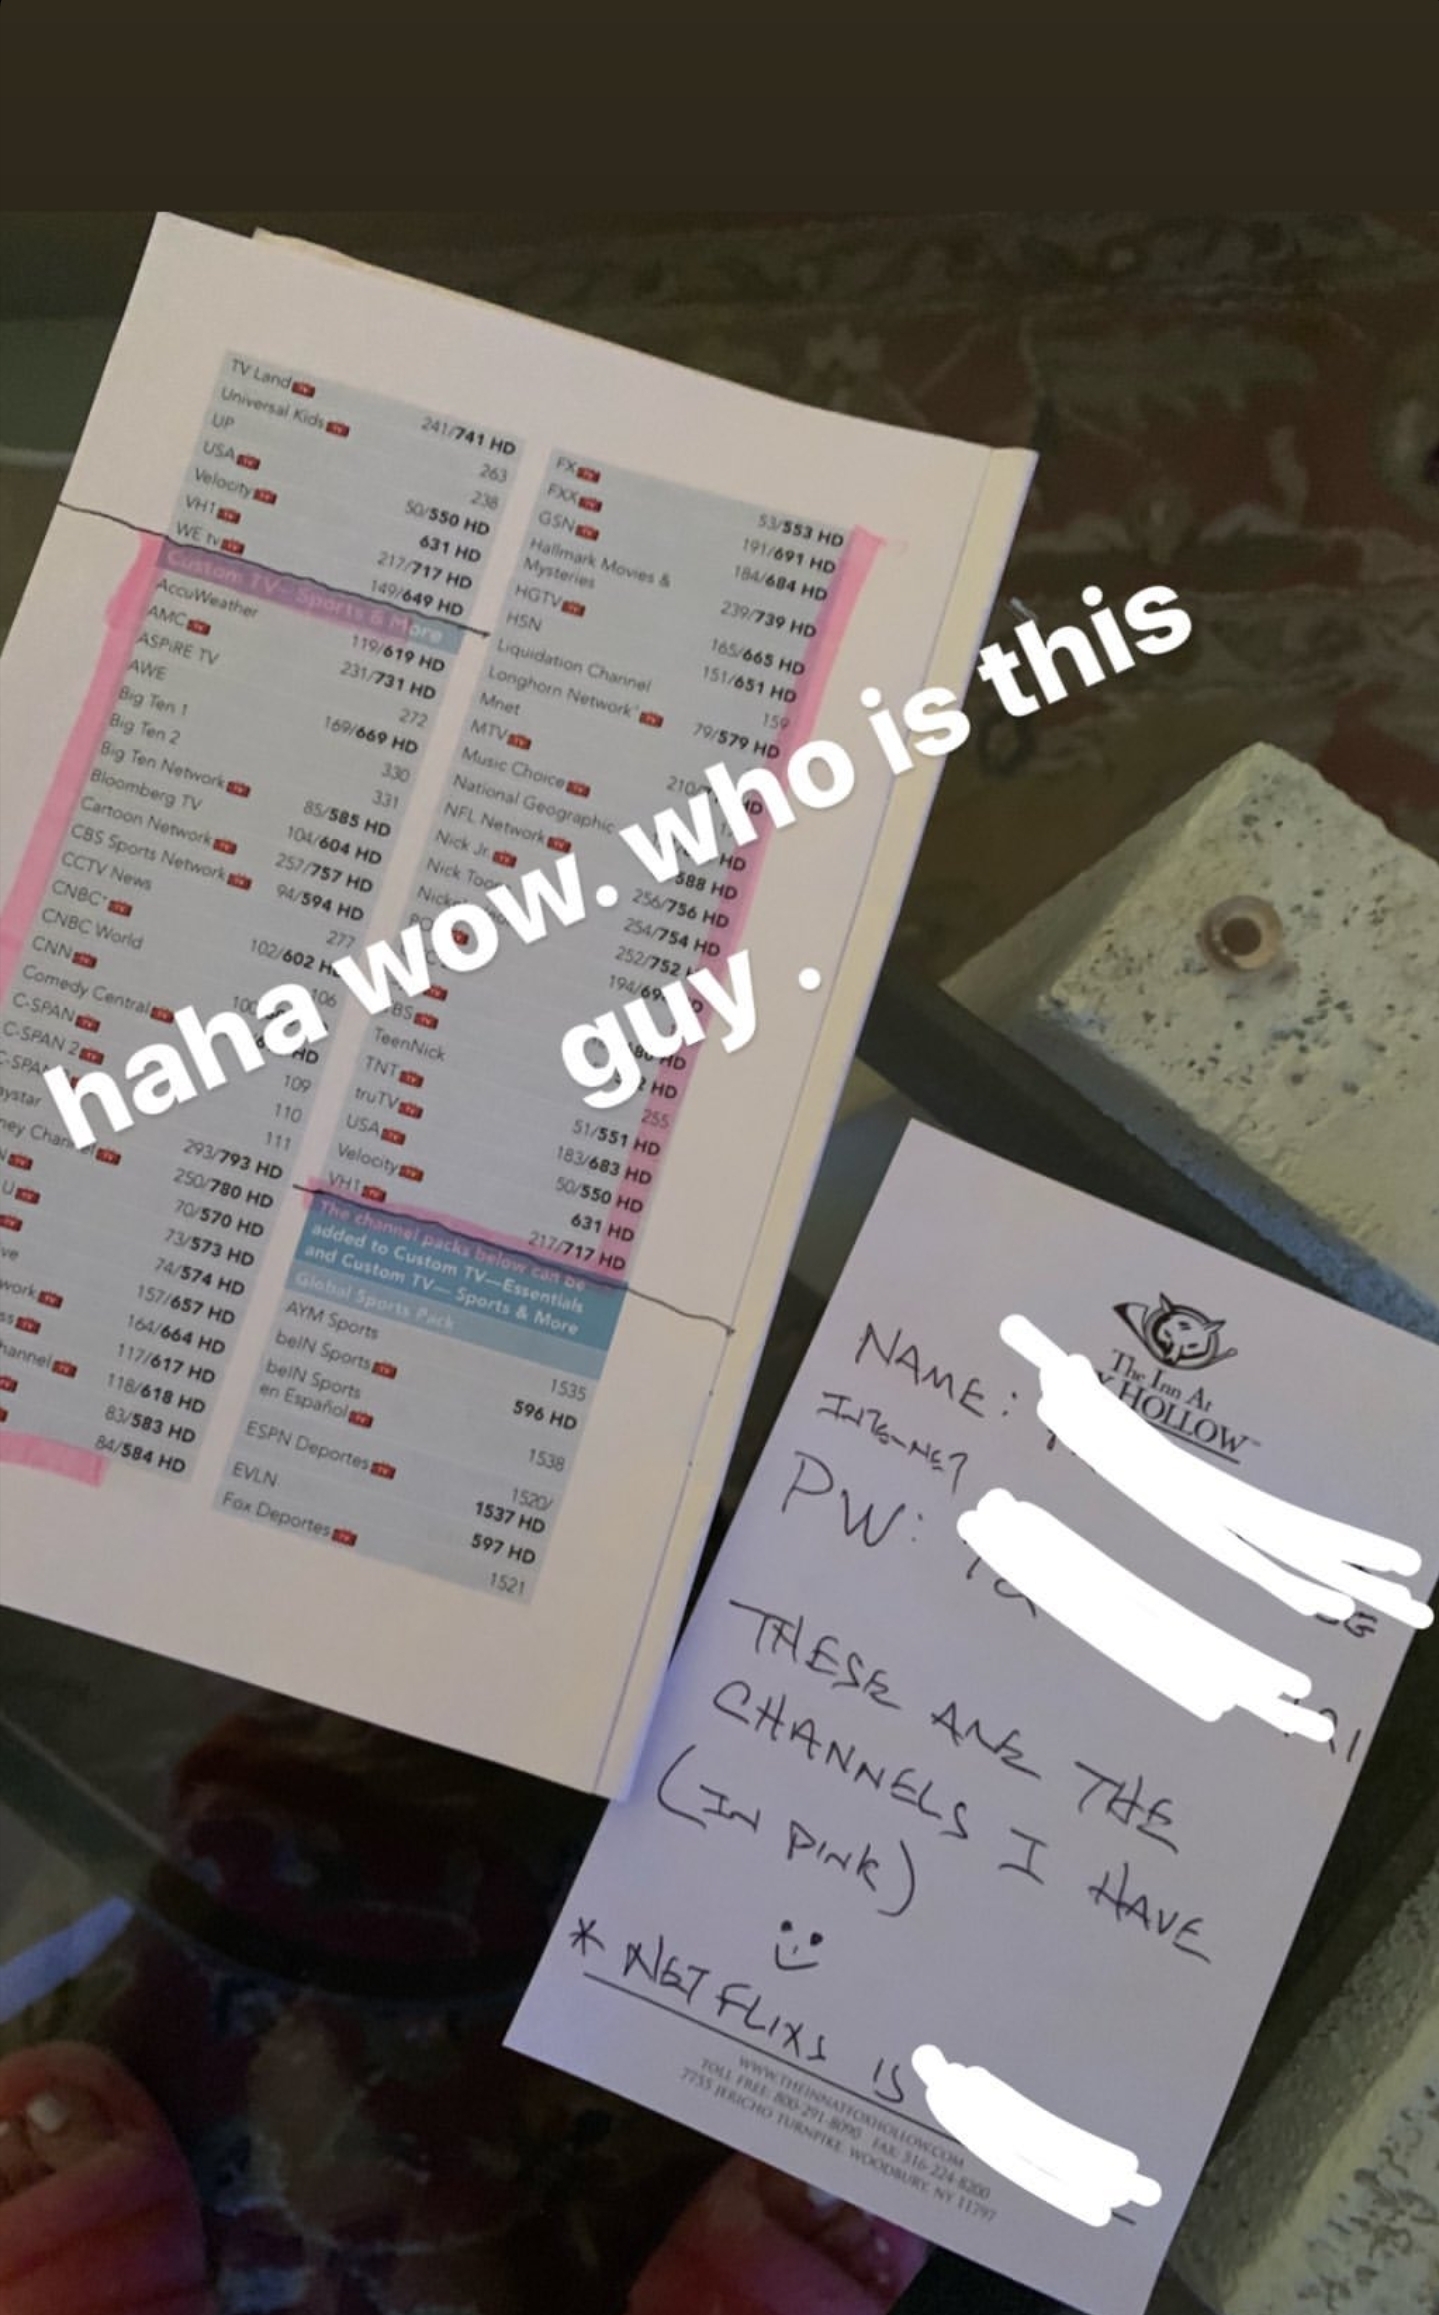 TV Land
241/741 HD
Universal Kids
263
UP
238
USA
50/550 HD
Velocity
631 HD
VH1
217/717 HD
WE tv
149/649 HD
Custom TV—Sports & More
AccuWeather
119/619 HD
AMC
231/731 HD
ASPiRE TV
272
AWE
169/669 HD
Big Ten 1
330
Big Ten 2
331
Big Ten Network
85/585 HD
Bloomberg TV
104/604 HD
Cartoon Network
257/757 HD
CBS Sports Network
94/594 HD
CCTV News
277
CNBC+
102/602
CNBC World
106
CNN
Comedy Central
HD
C-SPAN
109
C-SPAN 2
110
111
293/793 HD
250/780 HD
70/570 HD
73/573 HD
74/574 HD
157/657 HD
164/664 HD
117/617 HD
118/618 HD
83/583 HD
84/584 HD
FX
53/553 HD
FXX
191/691 HD
GSN
184/684 HD
Hallmark Movies &
Mysteries
239/739 HD
HGTV
165/665 HD
HSN
151/651 HD
Liquidation Channel
159
Longhorn Network
79/579 HD
Mnet
MTV
HD
Music Choice
National Geographic
HD
NFL Network
588 HD
Nick Jr.
256/756 HD
Nick
254/754 HD
252/752
TeenNick
255
TNT
51/551 HD
truTV
183/683 HD
USA
50/550 HD
Velocity
631 HD
VH1
217/717 HD
The channel packs below can be
added to Custom TV—Essentials
and Custom TV— Sports & More
Global Sports Pack
AYM Sports
1535
beIN Sports
596 HD
beIN Sports
en Español
1538
ESPN Deportes
1520/
1537 HD
EVLN
597 HD
Fox Deportes
1521
haha wow. who is this
guy .
The Inn At
HOLLOW
NAME:
INTERNET
PW:
THESE ARE THE
CHANNELS I HAVE
(IN PINK)
* NETFLIXS IS
WWW.THEINNATFOXHOLLOW.COM
TOLL FREE: 800-291-8090 FAX: 516-224-8200
7755 JERICHO TURNPIKE WOODBURY, NY 11797